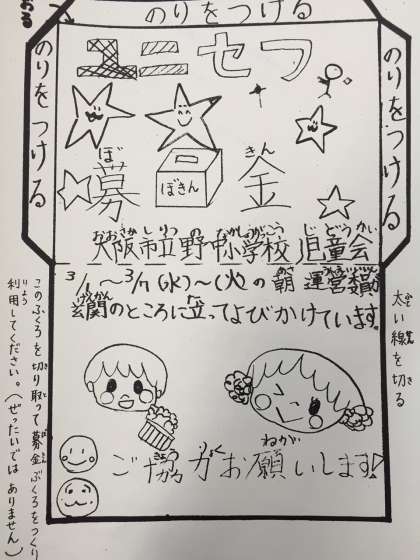 のりをつける
のりをつける
のりをつける
ユニセフ
ぼ きん
募金
ぼきん
おおさかしりつのなかしょうがっこう じどうかい
大阪市立野中小学校 児童会
3/1〜3/7(水)〜(火)の朝 運営
げんかん
玄関のところに立ってよびかけています。
太い線を切る
きょうりょく ねがい
ご協力お願いします!
このふくろを切り取って募金ぶくろをつくり
利用してください。(ぜったいではありません)